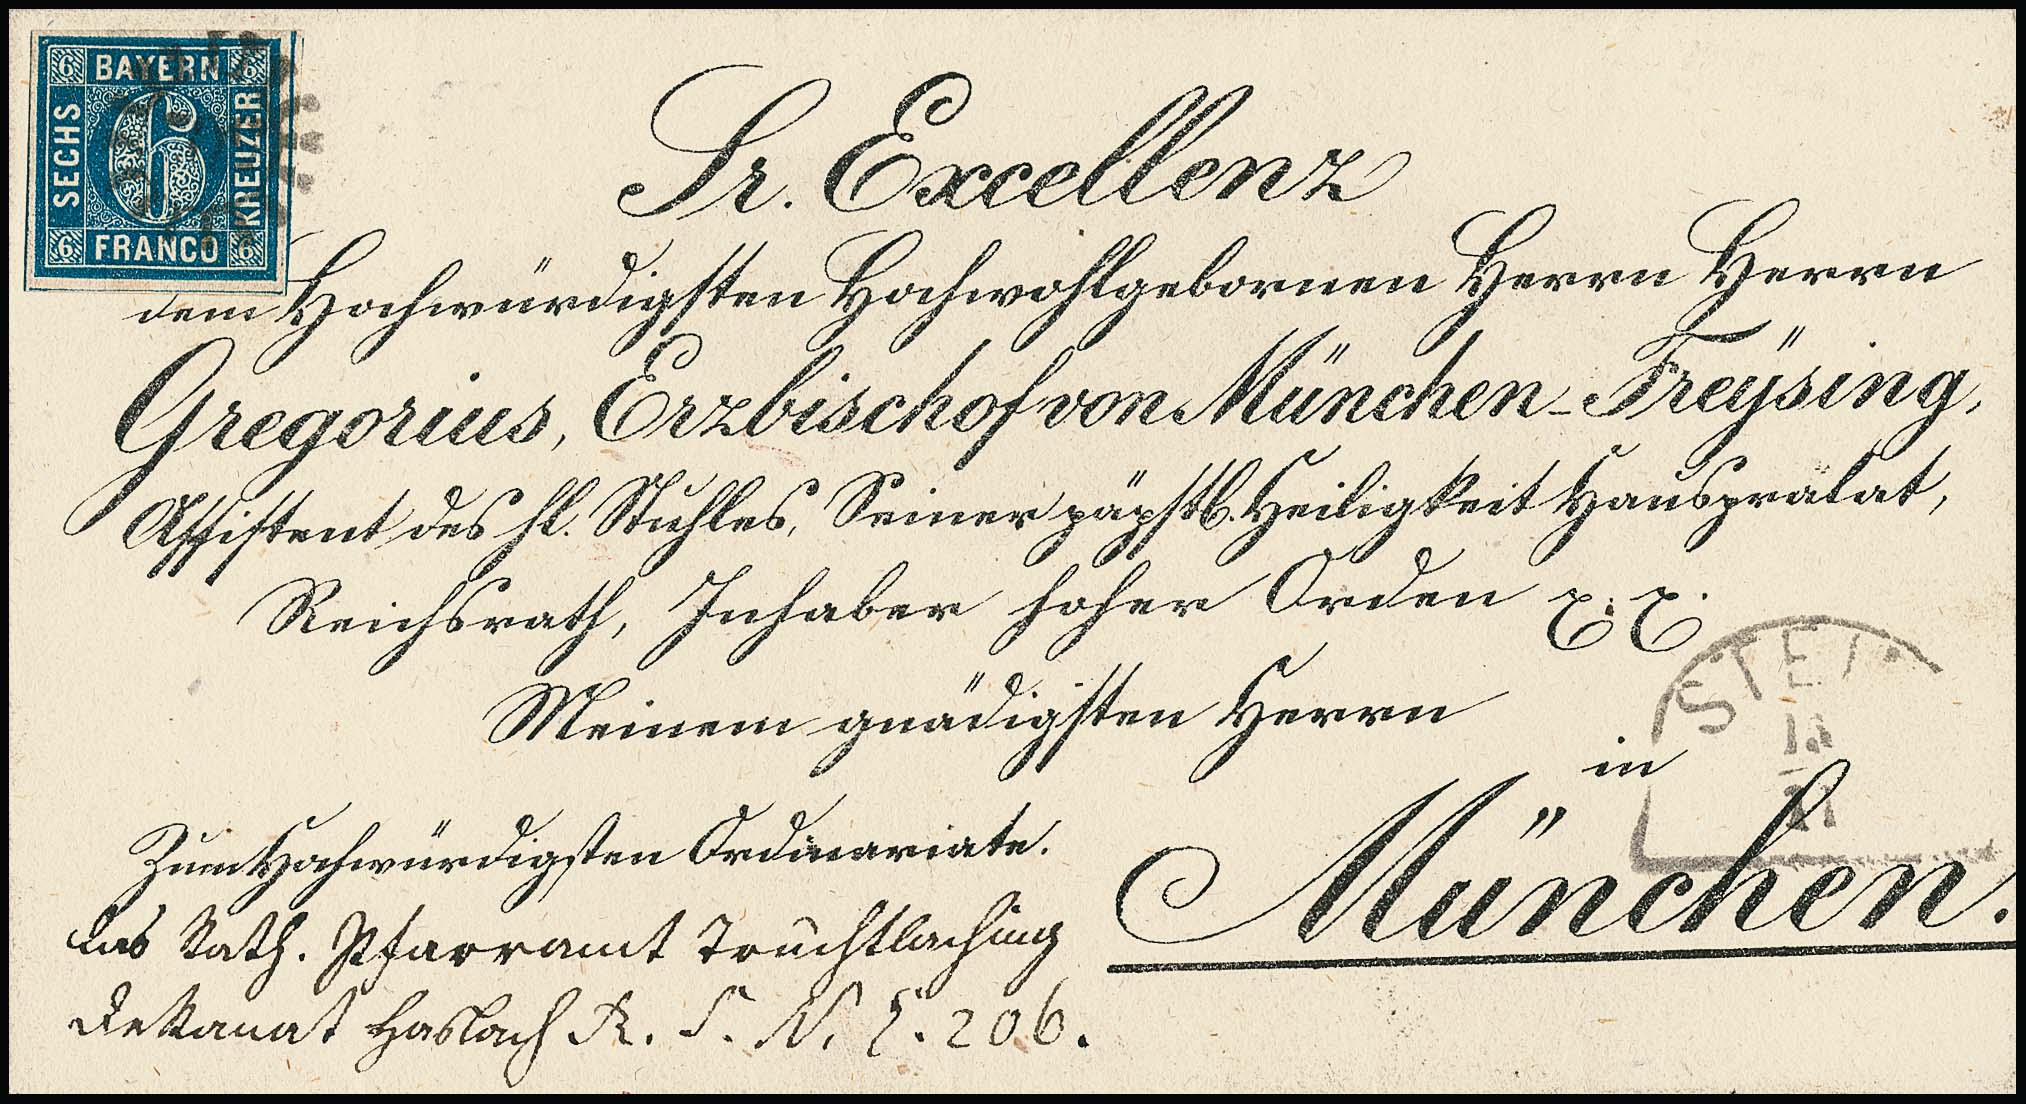 6 BAYERN 6
SECHS
6
KREUZER
6 FRANCO 6
Sr. Excellenz
dem Hochwürdigsten Hochwohlgebornen Herrn Herrn
Gregorius, Erzbischof von München-Freÿsing,
Assistent des hl. Stuhles, Seiner päpstl. Heiligkeit Hausprälat,
Reichsrath, Inhaber hoher Orden
Meinem gnädigsten Herrn
in
München.
Zum Hochwürdigsten Ordinariate.
das Kath. Pfarramt Truchtlaching
Dekanat Haslach R. S. N. E. 206.
STEI